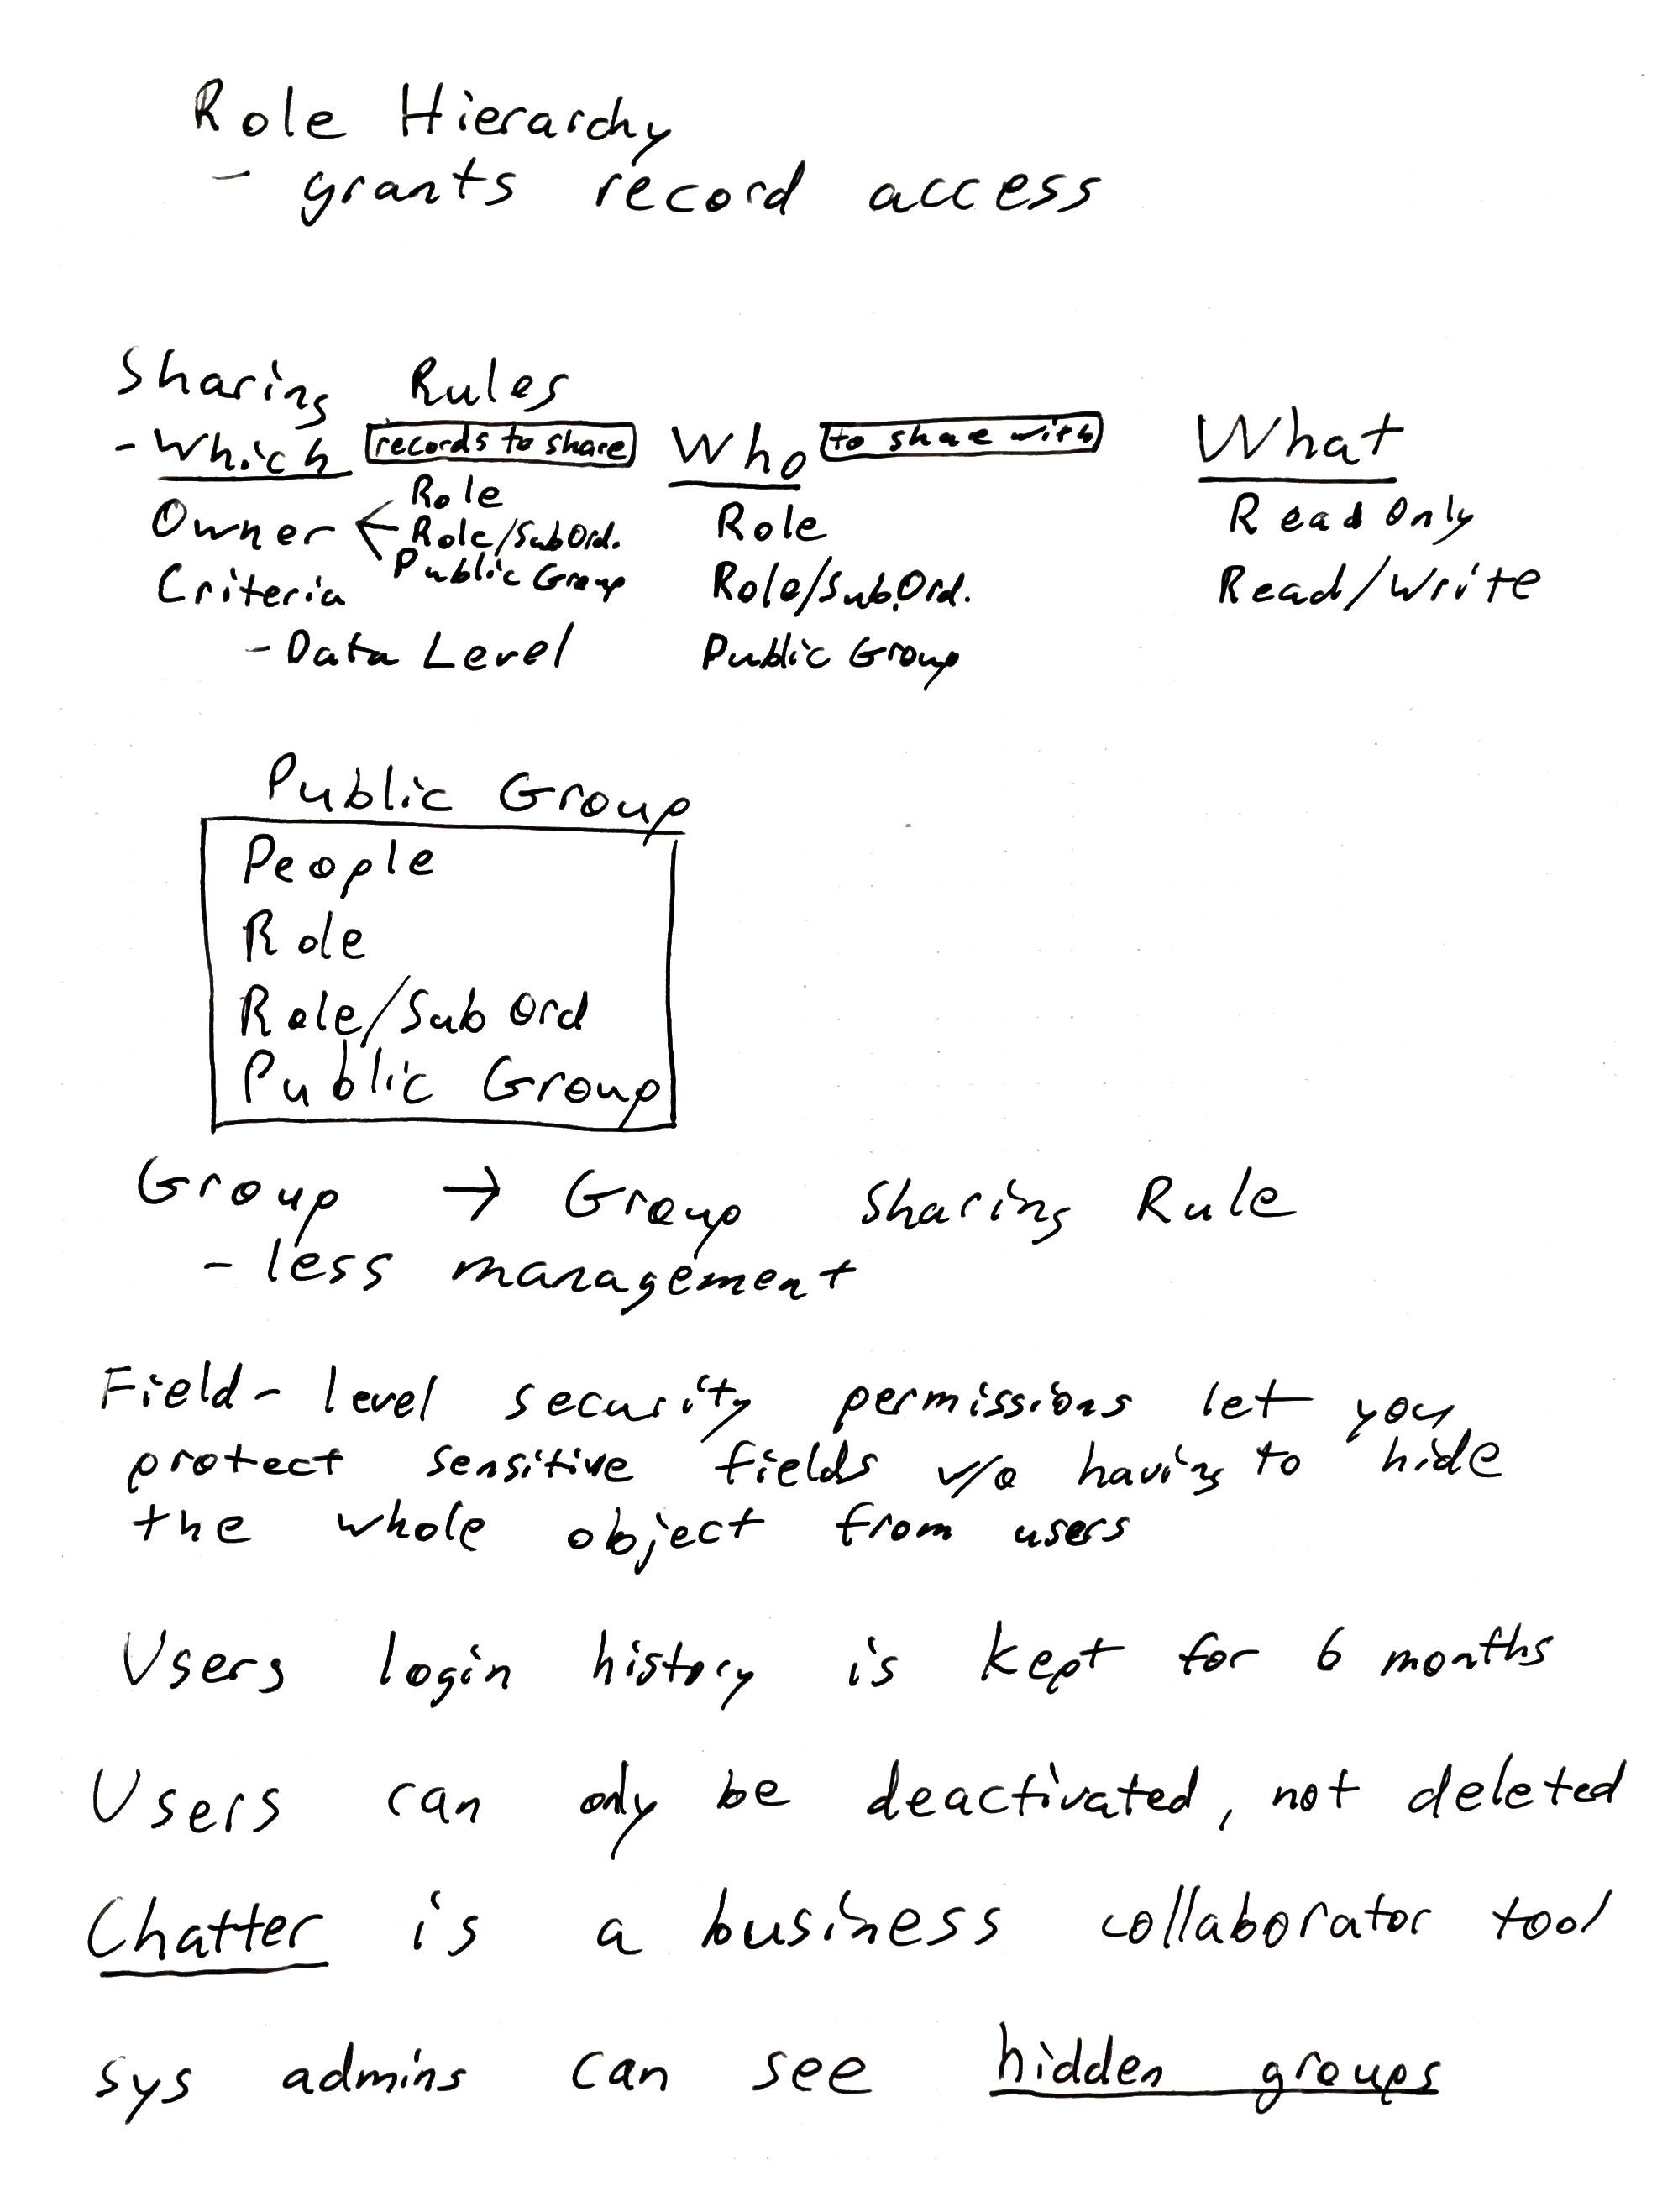 Role Hierarchy
- grants record access
Sharing Rules
- Which records to share Who to share with What
Role
Owner Role/SubOrd. Role Read Only
Public Group
Criteria Role/SubOrd. Read/Write
- Data Level Public Group
Public Group
People
Role
Role/Sub Ord
Public Group
Group → Group Sharing Rule
- less management
Field-level security permissions let you
protect sensitive fields w/o having to hide
the whole object from users
Users login history is kept for 6 months
Users can only be deactivated, not deleted
Chatter is a business collaborator tool
sys admins can see hidden groups